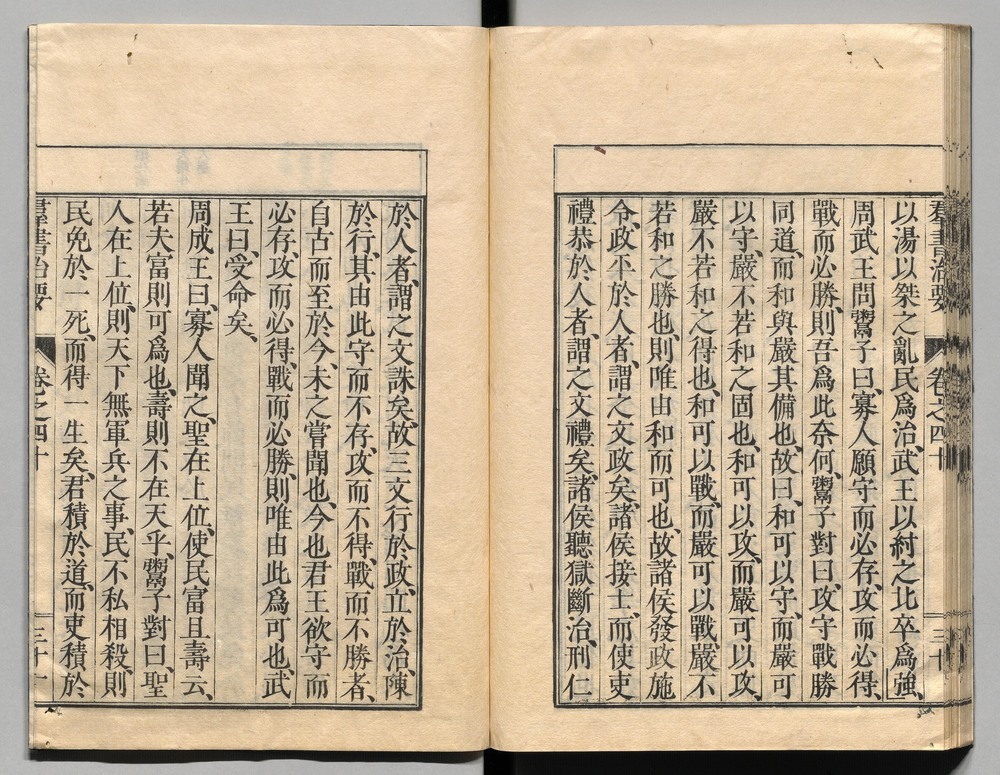 羣書治要 卷之四十 三十
以湯以桀之亂民爲治、武王以紂之北卒爲強、
周武王問鬻子曰、寡人願守而必存、攻而必得、
戰而必勝、則吾爲此奈何、鬻子對曰、攻守戰勝
同道、而和與嚴其備也、故曰、和可以守、而嚴可
以守、嚴不若和之固也、和可以攻、而嚴可以攻、
嚴不若和之得也、和可以戰、而嚴可以戰、嚴不
若和之勝也、則唯由和而可也、故諸侯發政施
令、政平於人者、謂之文政矣、諸侯接士、而使吏
禮恭於人者、謂之文禮矣、諸侯聽獄斷治、刑仁
於人者、謂之文誅矣、故三文行於政、立於治、陳
於行、其由此守而不存、攻而不得、戰而不勝者、
自古而至於今、未之嘗聞也、今也君王欲守而
必存、攻而必得、戰而必勝、則唯由此爲可也、武
王曰、受命矣、
周成王曰、寡人聞之、聖在上位、使民富且壽云、
若夫富則可爲也、壽則不在天乎、鬻子對曰、聖
人在上位、則天下無軍兵之事、民不私相殺、則
民免於一死、而得一生矣、君積於道、而吏積於
羣書治要 卷之四十 三十一